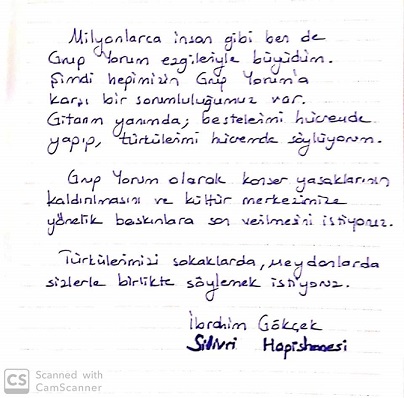 Milyonlarca insan gibi ben de
Grup Yorum ezgileriyle büyüdüm.
Şimdi hepimizin Grup Yorum'a
karşı bir sorumluluğumuz var.
Gitarım yanımda; bestelerimi hücremde
yapıp, türkülerimi hücremde söylüyorum.
Grup Yorum olarak konser yasaklarının
kaldırılmasını ve kültür merkezimize
yönelik baskınlara son verilmesini istiyoruz.
Türkülerimizi sokaklarda, meydanlarda
sizlerle birlikte söylemek istiyoruz.
İbrahim Gökçek
Silivri Hapishanesi
CS Scanned with
CamScanner